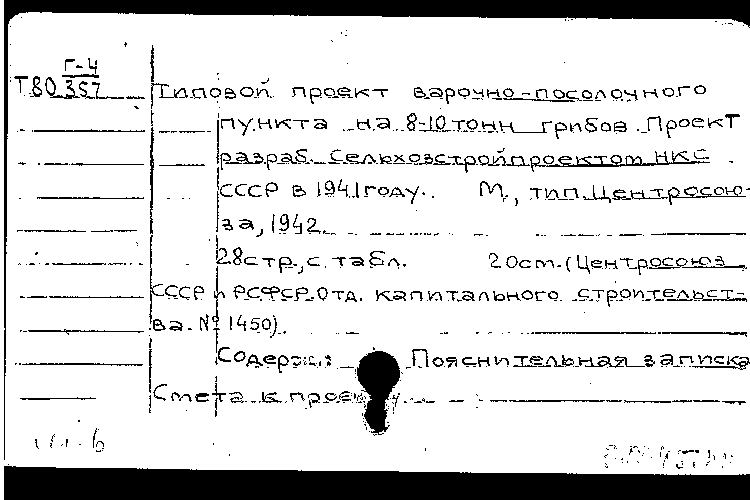 Г-4
Т80 357
Типовой проект варочно-посолочного
пункта на 8-10 тонн грибов. Проект
разраб. Сельхозстройпроектом НКС
СССР в 1941 году. М, тип. Центросою-
за, 1942.
28стр., с табл. 20cm. (Центросоюз
СССР и РСФСР. Отд. капитального строительст-
ва. № 1450).
Содерж.: Пояснительная записка
Смета к проекту.